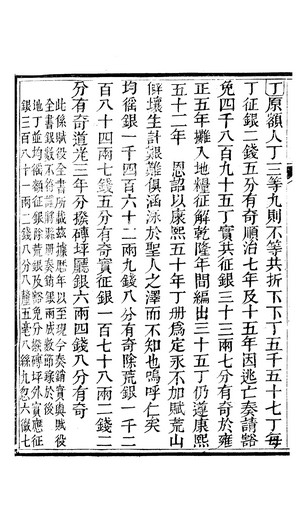 丁原額人丁三等九則不等共折下下丁五千五十七丁每
丁征銀二錢五分有奇順治七年及十五年因逃亡奏請豁
免四千八百九十五丁實共征銀三十三兩七分有奇於雍
正五年攤入地糧征解乾隆年間編出三十五丁仍遵康熙
五十二年　恩詔以康熙五十年丁册爲定永不加賦荒山
僻壤生計艱難俱涵泳於聖人之澤而不知也嗚呼仁矣
均徭銀一千四百六十二兩九錢八分有奇除荒銀一千二
百八十四兩七錢五分有奇實征銀一百七十八兩二錢二
分有奇道光三年分撥磚坪廳銀六兩四錢八分有奇
此係賦役全書所載茲據歷年以至現今奏銷實與賦役
全書銀數不符謹將奏銷銀兩成數節錄於後
地丁並均徭額征銀除荒銀及豁免分撥磚坪外實應征
銀三百八十一兩二錢八分八釐五毫八絲九忽六微七